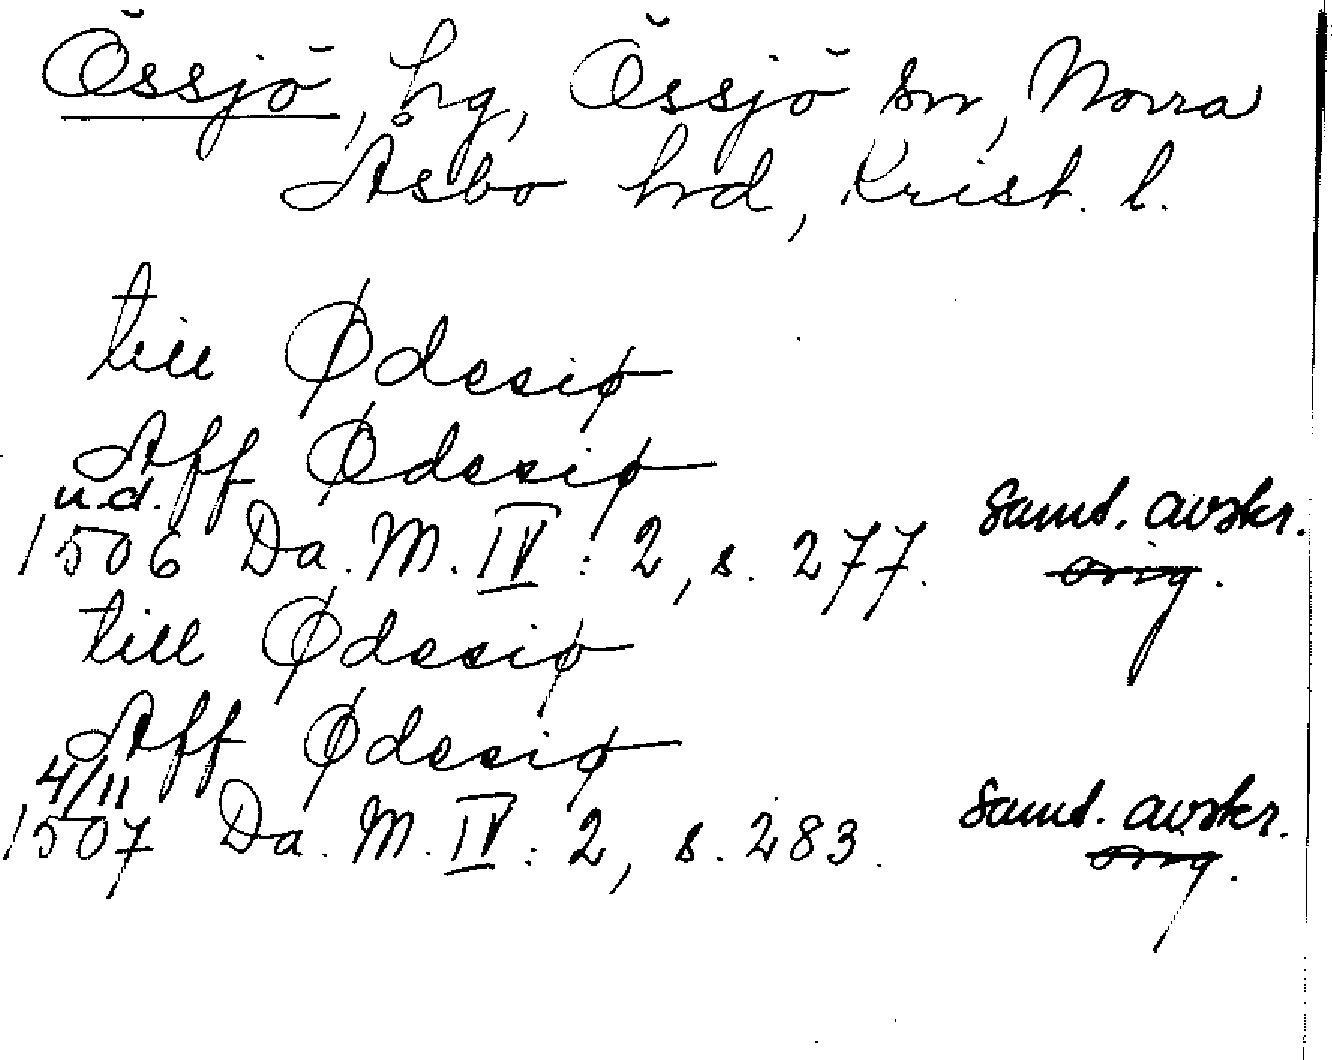 Össjö, hg, Össjö sn, Norra
Åsbo hd, Krist. l.
till Ødesiø
Aff Ødesiø
u.d.
1506 Da. M. IV: 2, s. 277. Samt. avskr.
orig.
till Ødesiø
Aff Ødesiø
4/11
1507 Da. M. IV: 2, s. 283. Samt. avskr.
orig.